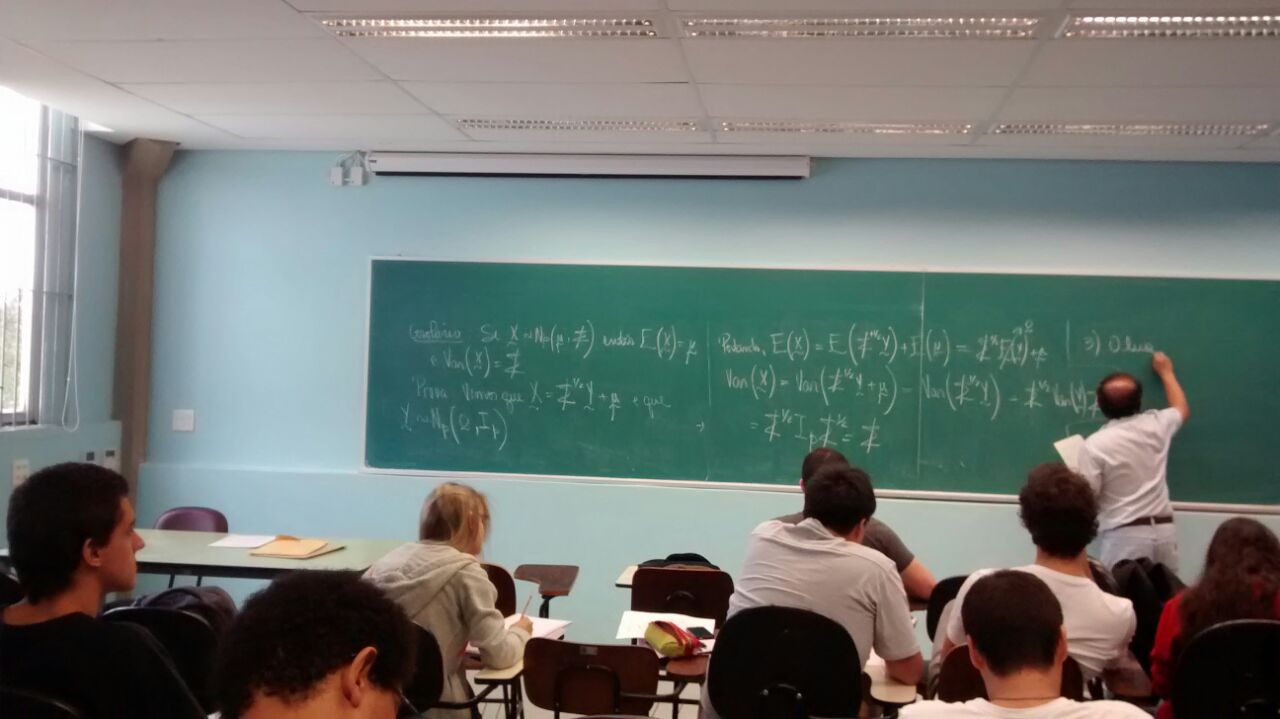 Corolário Se X ~ Np(μ, Σ) então E(X) = μ
e Var(X) = Σ
Prova Vimos que X = Σ^1/2 Y + μ e que
Y ~ Np(0, Ip)
Portanto, E(X) = E(Σ^1/2 Y) + E(μ) = Σ^1/2 E(Y) + μ
Var(X) = Var(Σ^1/2 Y + μ) = Var(Σ^1/2 Y) = Σ^1/2 Var(Y)
= Σ^1/2 Ip Σ^1/2 = Σ
3) O